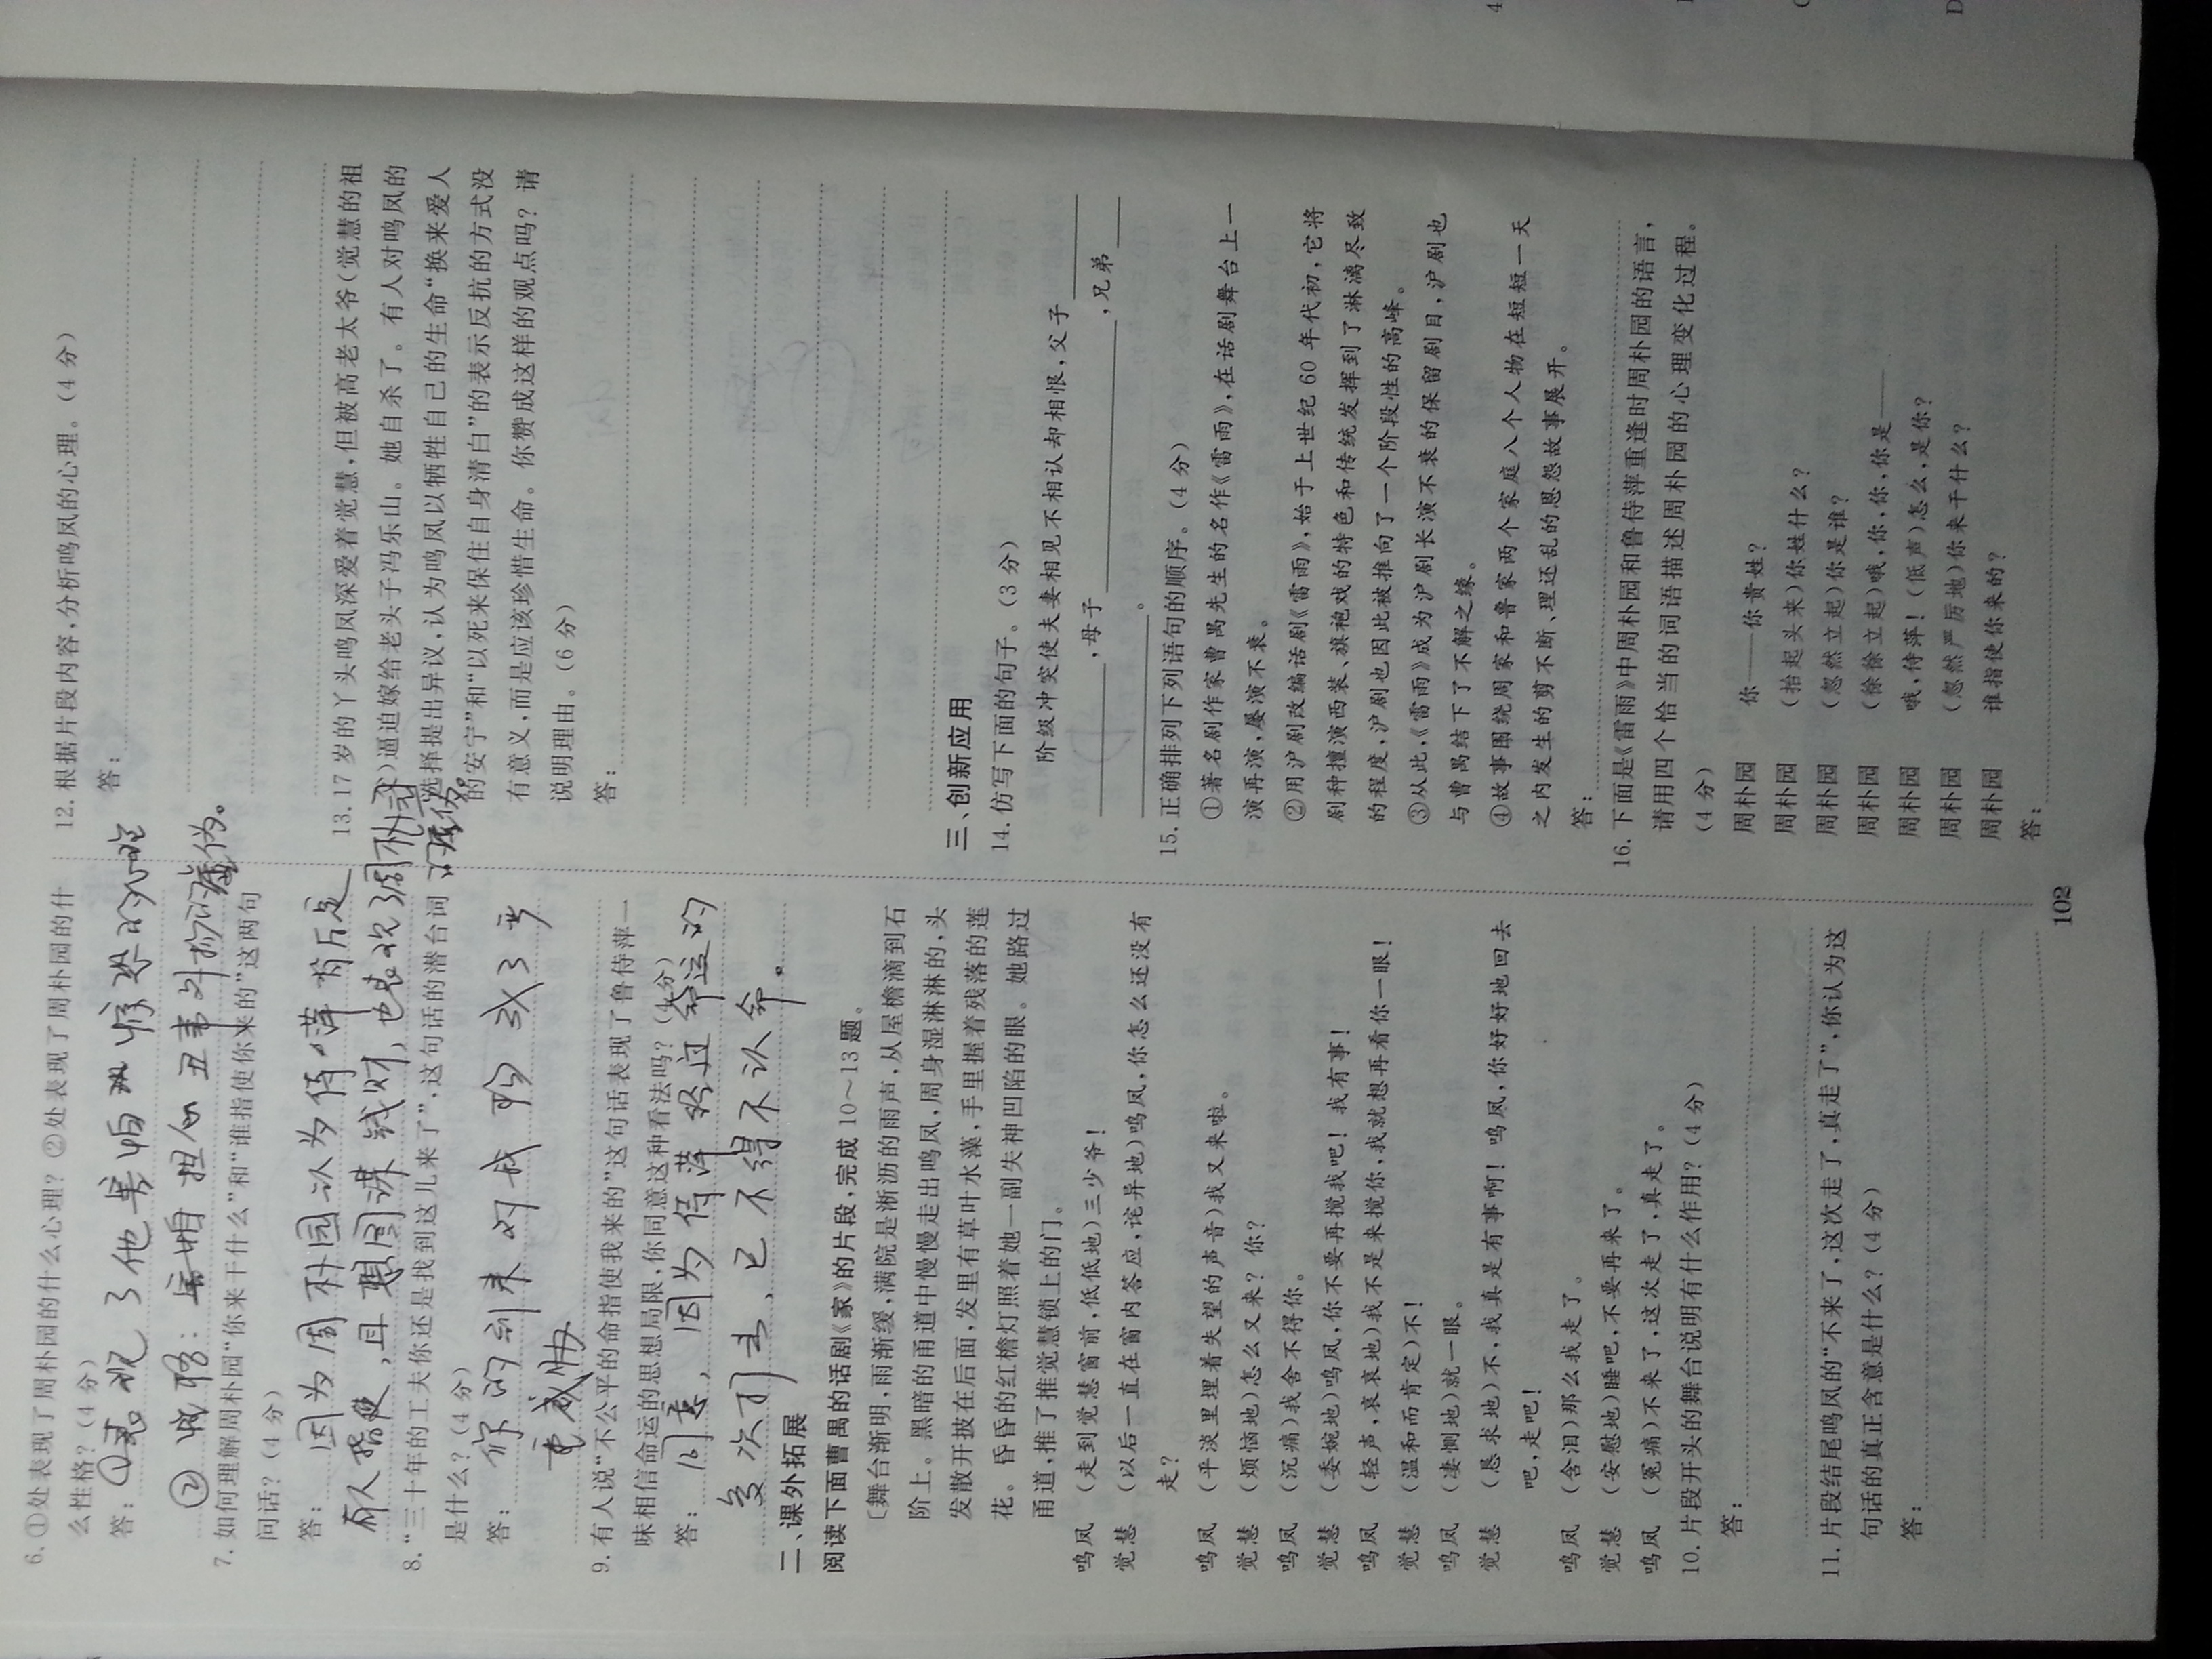 6. ①处表现了周朴园的什么心理？②处表现了周朴园的什
么性格？（4 分）
答：①表现了他害怕惊恐的心理
② 性格：害怕担心丑事外扬的虚伪。
7. 如何理解周朴园“你来干什么”和“谁指使你来的”这两句
问话？（4 分）
答：因为周朴园认为侍萍背后是
有人指使，且想图谋钱财，也表现了周朴园
的虚伪。
8. “三十年的工夫你还是找到这儿来了”，这句话的潜台词
是什么？（4 分）
答：你的到来对我构成了严
重威胁
9. 有人说“不公平的命指使我来的”这句话表现了鲁侍萍一
味相信命运的思想局限，你同意这种看法吗？（4 分）
答：同意，因为侍萍经过命运的
多次打击，已不得不认命。
二、课外拓展
阅读下面曹禺的话剧《家》的片段，完成 10～13 题。
〔舞台渐明，雨渐缓，满院是淅沥的雨声，从屋檐滴到石
阶上。黑暗的甬道中慢慢走出鸣凤，周身湿淋淋的，头
发散开披在后面，发里有草叶水藻，手里握着残落的莲
花。昏昏的红檐灯照着她一副失神凹陷的眼。她路过
甬道，推了推觉慧锁上的门。
鸣凤　（走到觉慧窗前，低低地）三少爷！
觉慧　（以后一直在窗内答应，诧异地）鸣凤，你怎么还没有
走？
鸣凤　（平淡里埋着失望的声音）我又来啦。
觉慧　（烦恼地）怎么又来？你？
鸣凤　（沉痛）我舍不得你。
觉慧　（委婉地）鸣凤，你不要再搅我吧！我有事！
鸣凤　（轻声，哀哀地）我不是来搅你，我就想再看你一眼！
觉慧　（温和而肯定）不！
鸣凤　（凄恻地）就一眼。
觉慧　（恳求地）不，我真是有事啊！鸣凤，你好好地回去
吧，走吧！
鸣凤　（含泪）那么我走了。
觉慧　（安慰地）睡吧，不要再来了。
鸣凤　（冤痛）不来了，这次走了，真走了。
10. 片段开头的舞台说明有什么作用？（4 分）
答：
11. 片段结尾鸣凤的“不来了，这次走了，真走了”，你认为这
句话的真正含意是什么？（4 分）
答：
12. 根据片段内容，分析鸣凤的心理。（4 分）
答：
13. 17 岁的丫头鸣凤深爱着觉慧，但被高老太爷（觉慧的祖
）逼迫嫁给老头子冯乐山。她自杀了。有人对鸣凤的
选择提出异议，认为鸣凤以牺牲自己的生命“换来爱人
的安宁”和“以死来保住自身清白”的表示反抗的方式没
有意义，而是应该珍惜生命。你赞成这样的观点吗？请
说明理由。（6 分）
答：
三、创新应用
14. 仿写下面的句子。（3 分）
阶级冲突使夫妻相见不相认却相恨，父子
，母子　　　　，兄弟
。
15. 正确排列下列语句的顺序。（4 分）
①著名剧作家曹禺先生的名作《雷雨》，在话剧舞台上一
演再演，屡演不衰。
②用沪剧改编话剧《雷雨》，始于上世纪 60 年代初，它将
剧种擅演西装、旗袍戏的特色和传统发挥到了淋漓尽致
的程度，沪剧也因此被推向了一个阶段性的高峰。
③从此，《雷雨》成为沪剧长演不衰的保留剧目，沪剧也
与曹禺结下了不解之缘。
④故事围绕周家和鲁家两个家庭八个人物在短短一天
之内发生的剪不断、理还乱的恩怨故事展开。
答：
16. 下面是《雷雨》中周朴园和鲁侍萍重逢时周朴园的语言，
请用四个恰当的词语描述周朴园的心理变化过程。
（4 分）
周朴园　你——你贵姓？
周朴园　（抬起头来）你姓什么？
周朴园　（忽然立起）你是谁？
周朴园　（徐徐立起）哦，你，你，你是——
周朴园　哦，侍萍！（低声）怎么，是你？
周朴园　（忽然严厉地）你来干什么？
周朴园　谁指使你来的？
答：
102